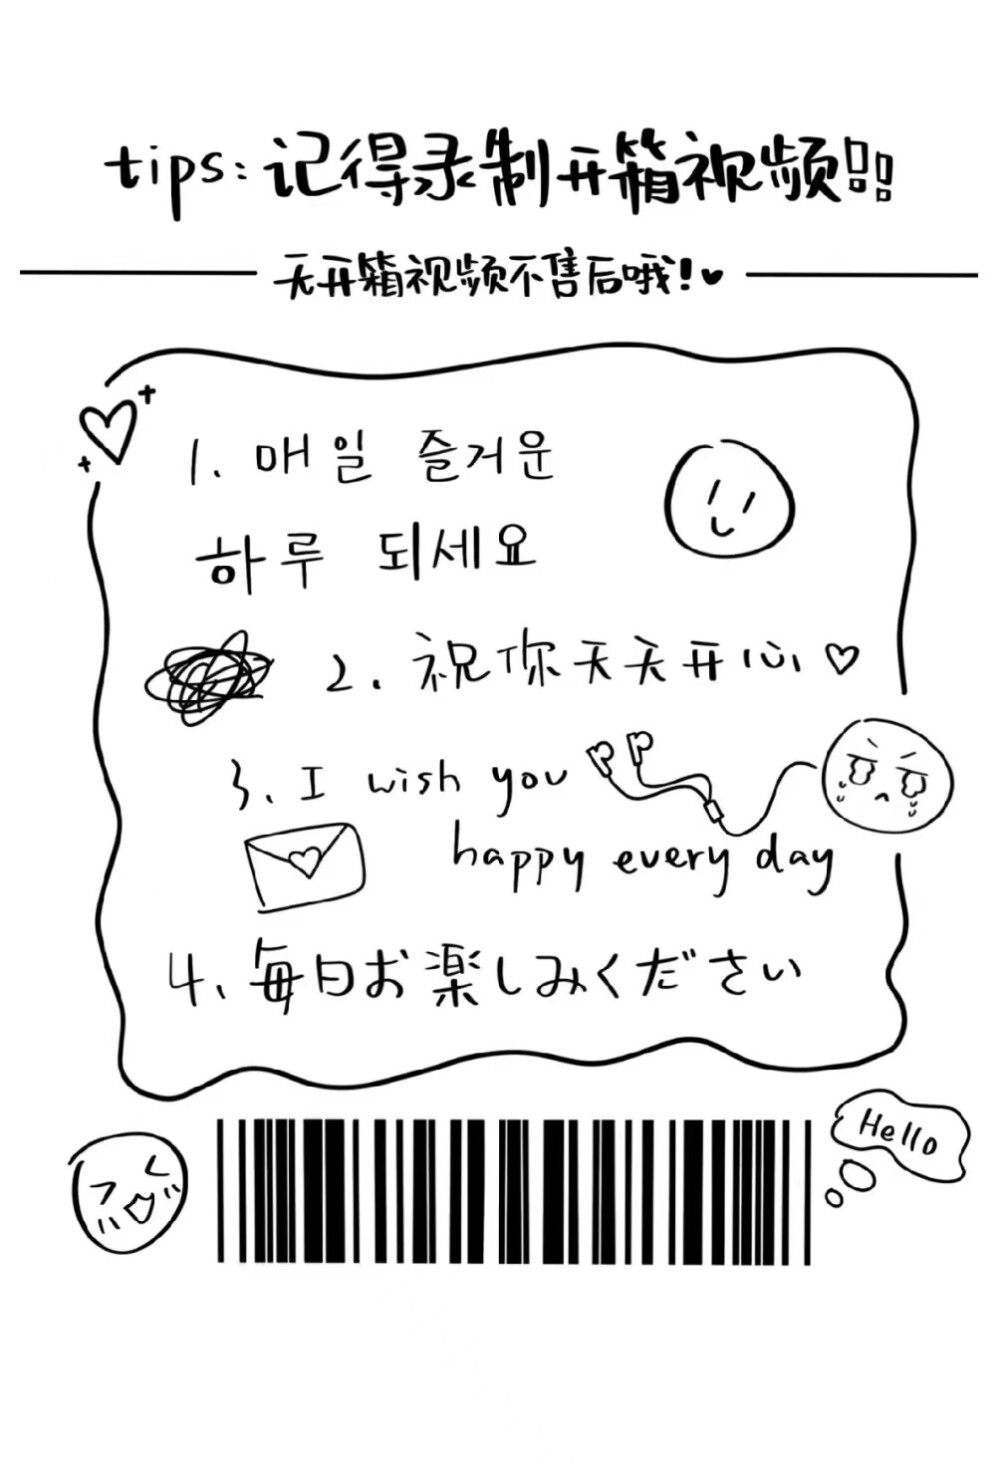 tips:记得录制开箱视频!!
无开箱视频不售后哦!
1. 매일 즐거운
하루 되세요
2. 祝你天天开心
3. I wish you
happy every day
4. 毎日お楽しみください
Hello